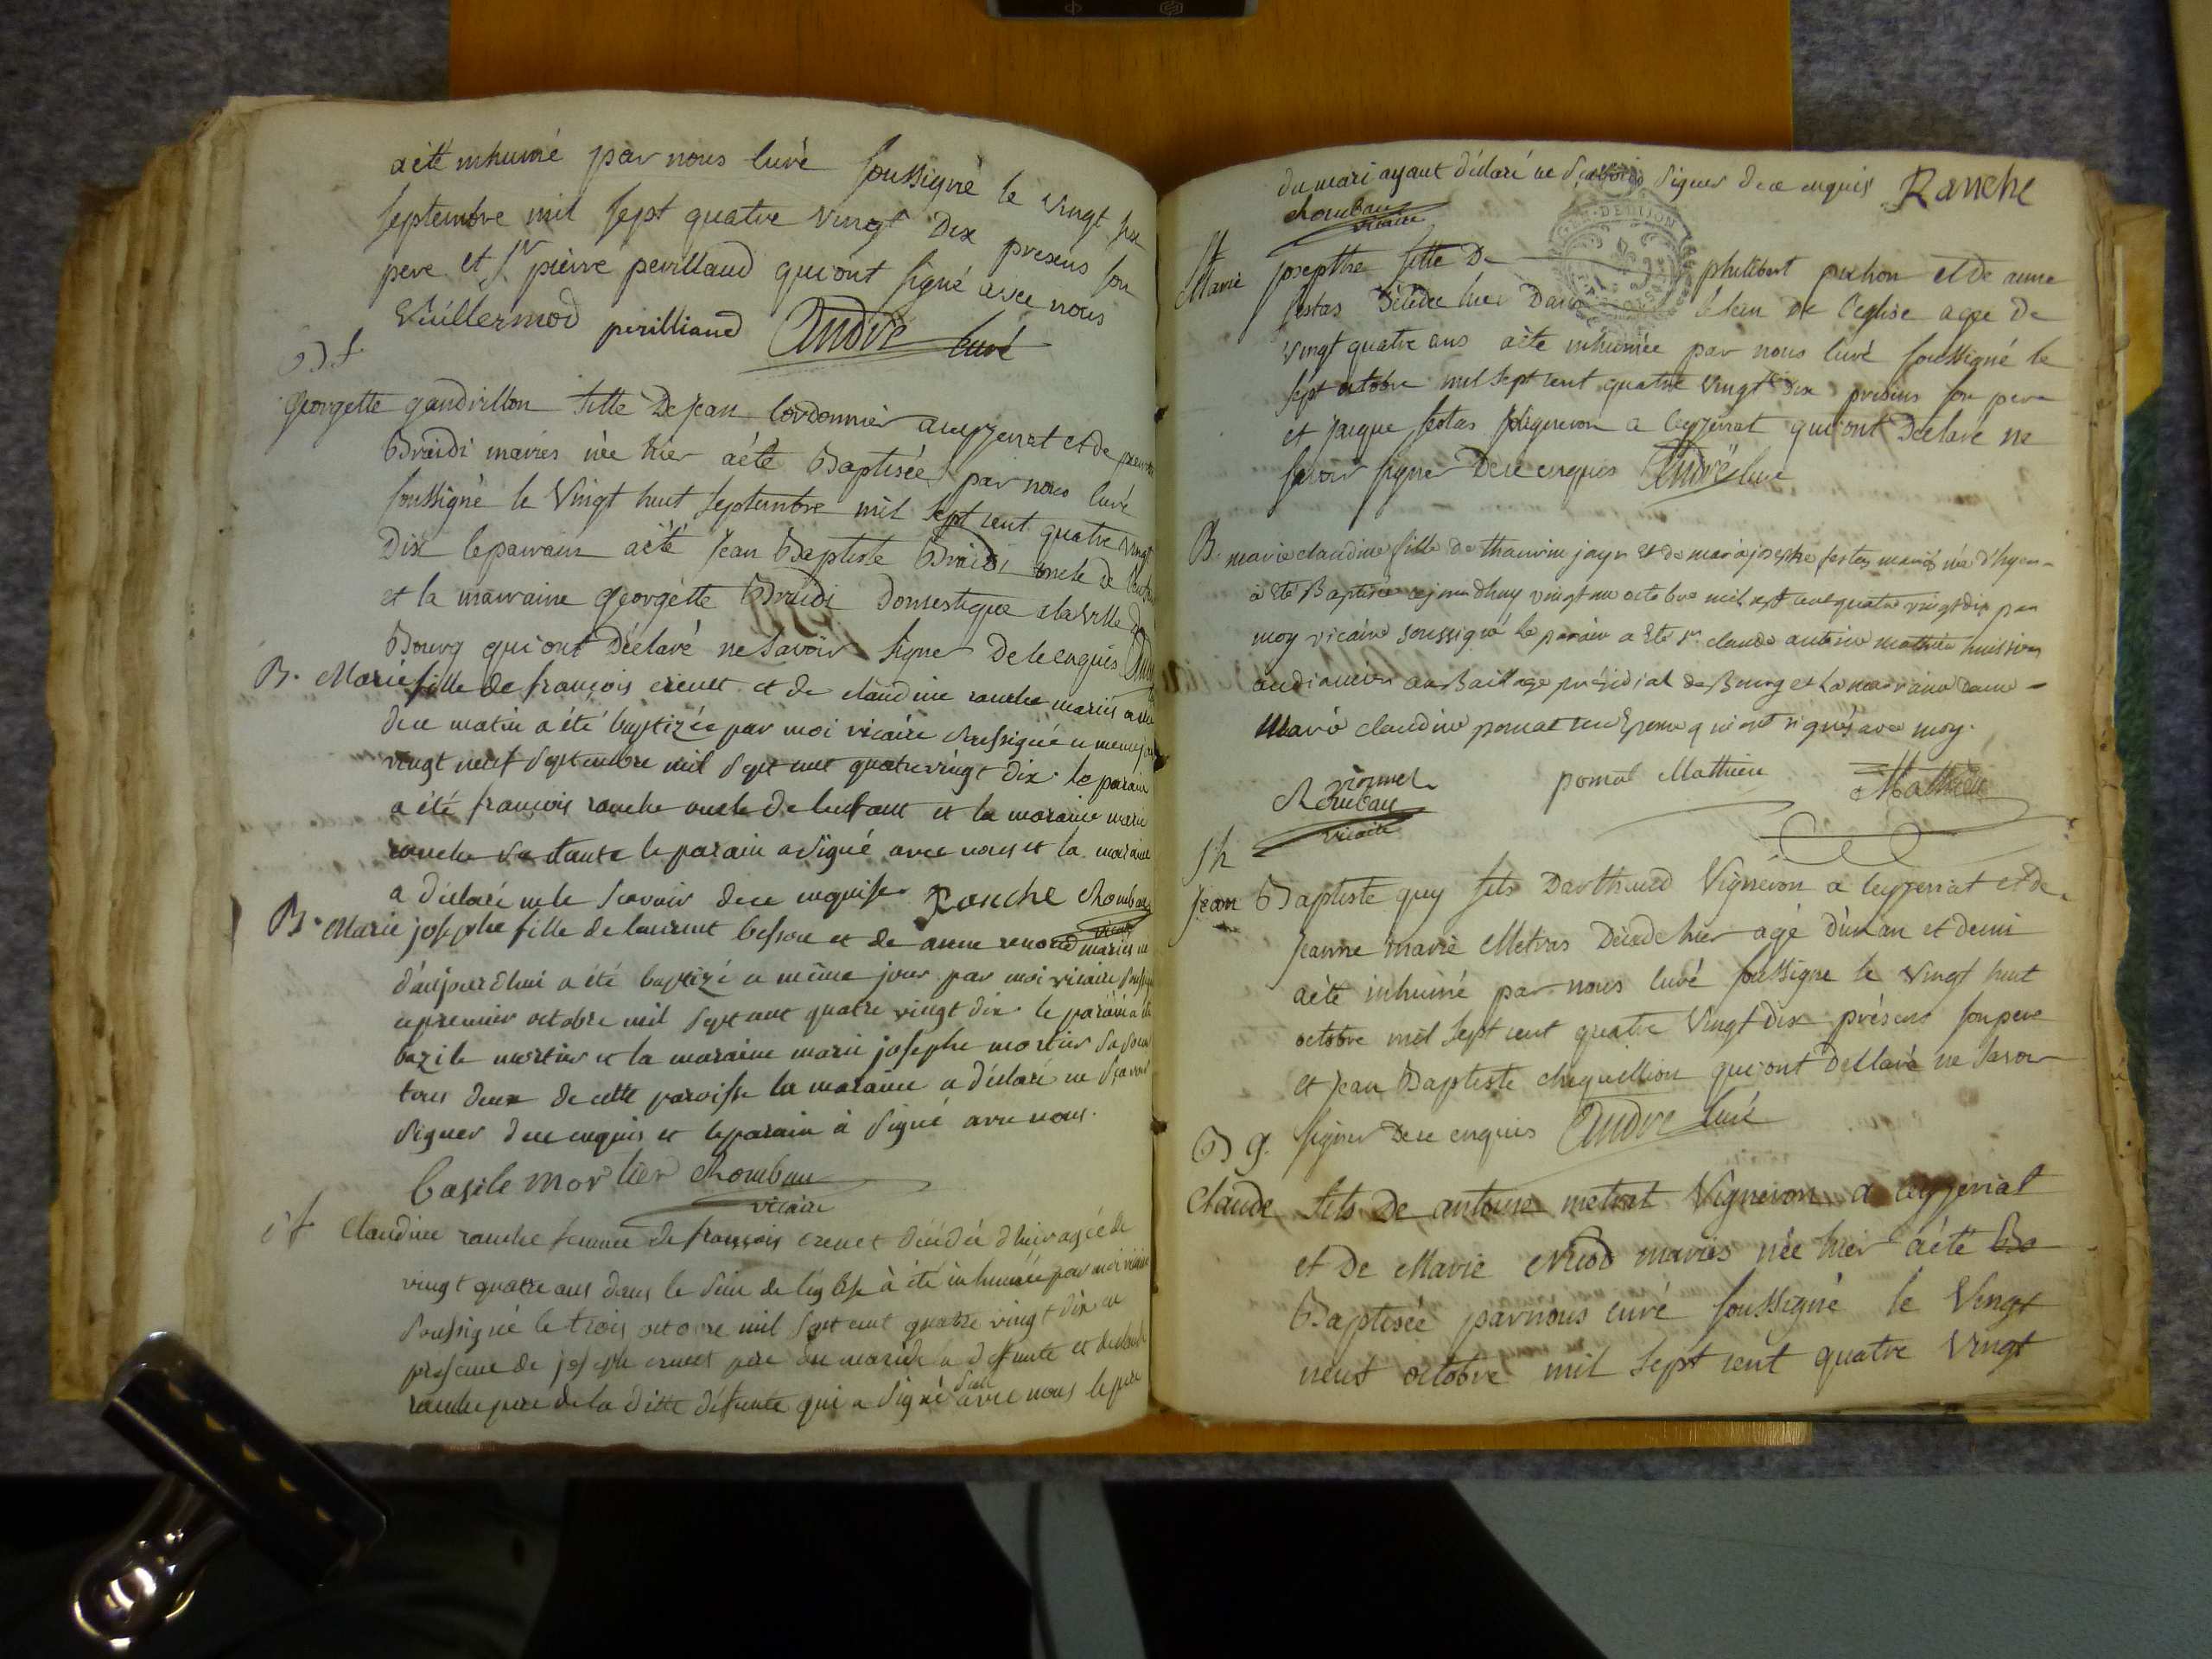 a été inhumé par nous curé soussigné le vingt six
septembre mil sept quatre vingt dix presens son
pere et Sr pierre perillaud qui ont signé avec nous
Vuillermod perilliaud André curé
B f
georgette gandrillon fille De jean Cordonnier a ceyzeriat et de
Braidi mariés née hier a été Baptisée par nous curé
soussigné le Vingt huit septembre mil sept cent quatre vingt
Dix le parrain a été jean Baptiste Braidi oncle de
et la marraine georgette Braidi Domestique a la ville de
Bourg qui ont Déclaré ne savoir signer De ce enquis
B. Marie fille de françois crenet et de claudine ranche mariés
de ce matin a été baptizée par moi vicaire soussigné ce meme jour
vingt neuf septembre mil sept cent quatre vingt dix le parain
a été françois ranche oncle de lenfant et la maraine marie
ranche sa tante le parain a signé avec nous et la maraine
a déclaré ne le scavoir de ce enquise Ranche Chambau
vicaire
B. Marie josephe fille de laurent besson et de anne renoud mariés née
d'aujourdhui a été baptizé ce même jour par moi vicaire
ce premier octobre mil sept cent quatre vingt dix le parain a été
bazile mortier et la maraine marie josephe mortier sa soeur
tous deux de cette paroisse la maraine a déclaré ne sçavoir
signer de ce enquis et le parain à signé avec nous.
basile mortier Chambau
vicaire
s f Claudine ranche femme de françois crenet décédée d'hier agée de
vingt quatre ans dans le sein de léglise à été inhumée par moi vicaire
soussigné le trois octobre mil sept cent quatre vingt dix en
presence de joseph crenet pere du mari de la defunte et de
ranche pere de la ditte défunte qui a signé seul avec nous le pere
du mari ayant déclaré ne sçavoir signer de ce enquis Ranche
Chambau
vicaire
S f
Marie josepthe fille De philibert pichon et de anne
festas Décédée hier Dans le sein De l'eglise agée De
vingt quatre ans a été inhumée par nous curé soussigné le
sept octobre mil sept cent quatre vingt Dix presens son pere
et jacque festas vigneron a ceyzeriat qui ont Déclaré ne
savoir signer De ce enquis André curé
B. marie claudine fille de thaurin jayr et de marie josephe festas mariés née d'hyer
a été Baptisée ce jourdhuy vingt un octobre mil sept cent quatre vingt dix par
moy vicaire soussigné le parain a été Sr claude antoine mathieu huissier
audiancier au Baillage présidial de Bourg et la marraine dame
Marie claudine pomat son Epouse qui ont signés avec moy.
Chambau
vicaire
pomat Mathieu Mathieu
S h
jean Baptiste guy fils Darthaud Vigneron a ceyzeriat et de
jeanne marie Metras Décédé hier agé d'un an et demi
a été inhumé par nous curé soussigné le Vingt huit
octobre mil sept cent quatre Vingt dix présens son pere
et jean Baptiste chiquellion qui ont Déclaré ne savoir
signer De ce enquis André curé
B g.
Claude fils De antoine metrat Vigneron a ceyzeriat
et De Marie mariés née hier a été Ba
Baptisée par nous curé soussigné le Vingt
neuf octobre mil sept cent quatre Vingt